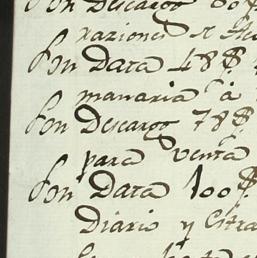 Pon Descargo 80$
raziones
Pon Data 48$
manaria á
Pon Descargo 78$
para Venta
Pon Data 100$
Diario y Citra